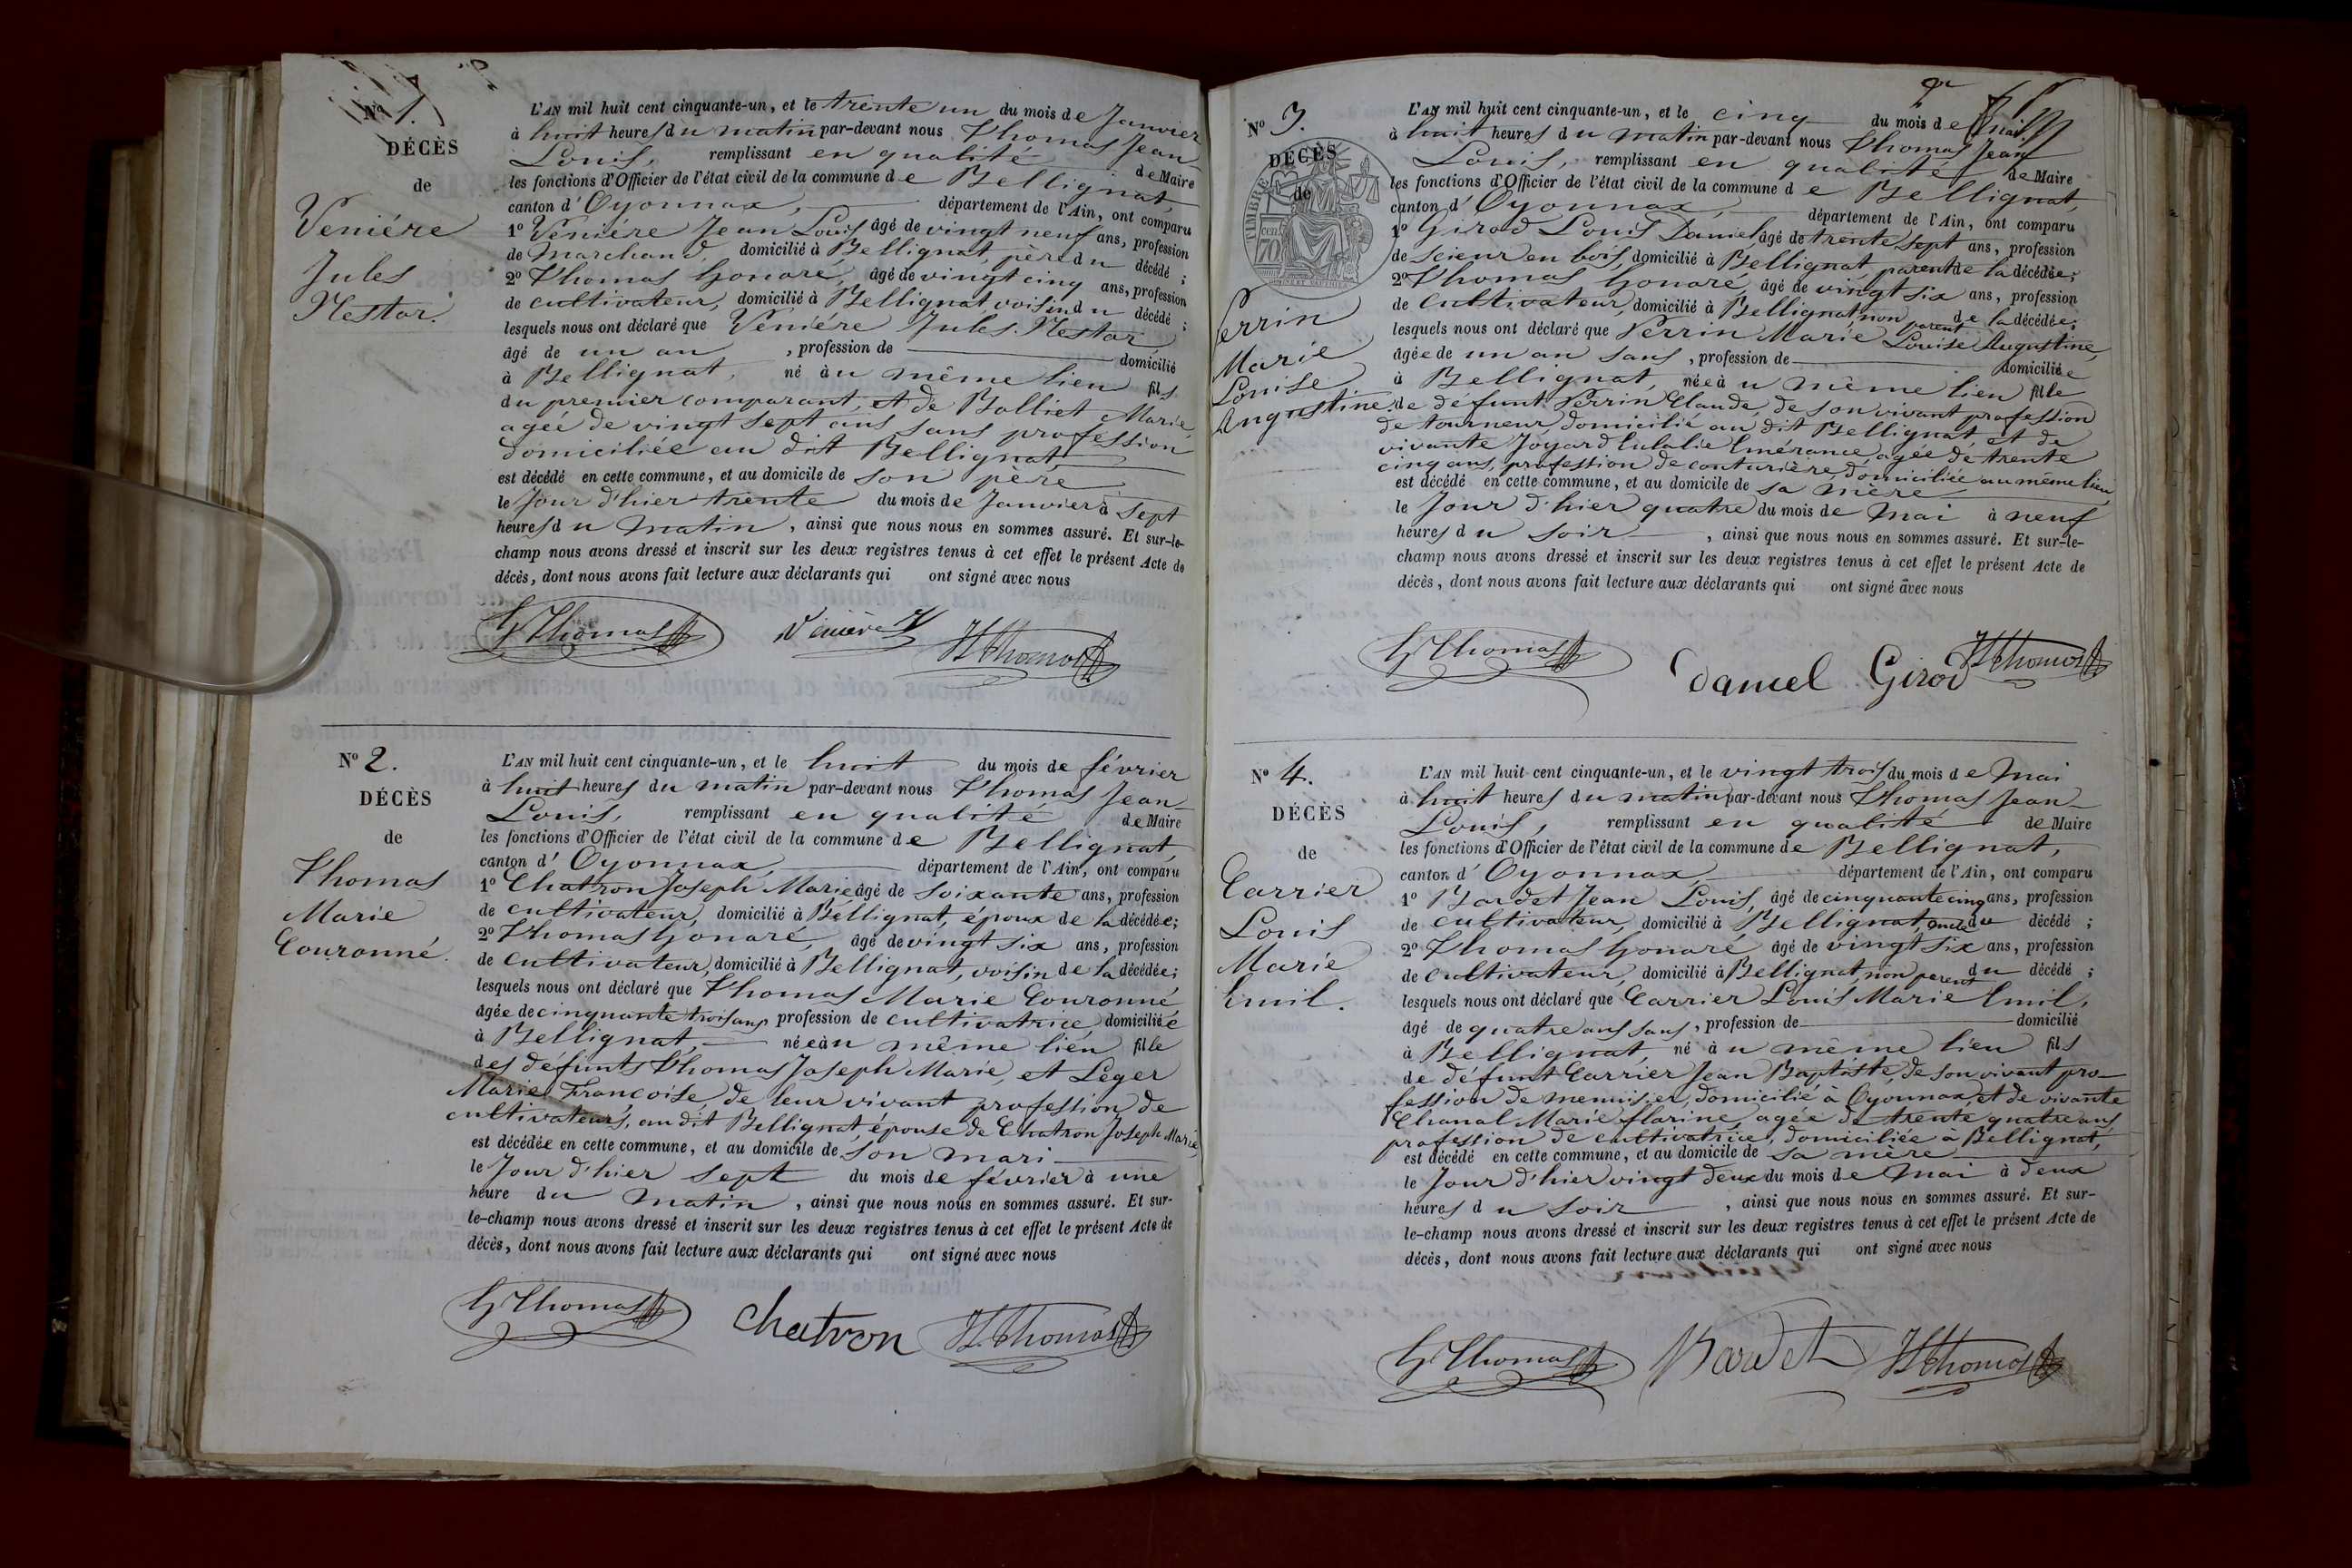 Nº 1.
DÉCÈS
de
Veniére
Jules
Nestor.
L'AN mil huit cent cinquante-un, et le trente un du mois de Janvier
à huit heures du matin par-devant nous Thomas Jean
Louis, remplissant en qualité de Maire
les fonctions d'Officier de l'état civil de la commune de Bellignat,
canton d'Oyonnax, département de l'Ain, ont comparu
1º Veniére Jean Louis âgé de vingt neuf ans, profession
de Marchand, domicilié à Bellignat, père du décédé;
2º Thomas honoré, âgé de vingt cinq ans, profession
de cultivateur, domicilié à Bellignat voisin du décédé;
lesquels nous ont déclaré que Veniére Jules Nestor
âgé de un an, profession de domicilié
à Bellignat, né à u même lieu fils
du premier comparant, et de Bolliet Marie,
agée de vingt sept ans sans profession
domiciliée au dit Bellignat,
est décédé en cette commune, et au domicile de son père
le Jour d'hier trente du mois de Janvier à sept
heures du matin, ainsi que nous nous en sommes assuré. Et sur-le-
champ nous avons dressé et inscrit sur les deux registres tenus à cet effet le présent Acte de
décès, dont nous avons fait lecture aux déclarants qui ont signé avec nous
h Thomas Venière JL Thomas
Nº 2.
DÉCÈS
de
Thomas
Marie
Couronné.
L'AN mil huit cent cinquante-un, et le huit du mois de février
à huit heures du matin par-devant nous Thomas Jean
Louis, remplissant en qualité de Maire
les fonctions d'Officier de l'état civil de la commune de Bellignat,
canton d'Oyonnax, département de l'Ain, ont comparu
1º Chatron Joseph Marie âgé de soixante ans, profession
de cultivateur, domicilié à Bellignat, époux de la décédée;
2º Thomas honoré, âgé de vingt six ans, profession
de cultivateur, domicilié à Bellignat, voisin de la décédée;
lesquels nous ont déclaré que Thomas Marie Couronné
âgée de cinquante trois ans, profession de cultivatrice, domiciliée
à Bellignat, née à u même lieu fille
des défunts Thomas Joseph Marie, et Leger
Marie Françoise, de leur vivant profession de
cultivateurs, au dit Bellignat, épouse de Chatron Joseph Marie
est décédée en cette commune, et au domicile de son mari
le Jour d'hier sept du mois de février à une
heure du matin, ainsi que nous nous en sommes assuré. Et sur-
le-champ nous avons dressé et inscrit sur les deux registres tenus à cet effet le présent Acte de
décès, dont nous avons fait lecture aux déclarants qui ont signé avec nous
h Thomas Chatron JL Thomas
Nº 3.
DÉCÈS
de
TIMBRE
70
Perrin
Marie
Louise
Augustine,
L'AN mil huit cent cinquante-un, et le cinq du mois de Mai
à huit heures du matin par-devant nous Thomas Jean
Louis, remplissant en qualité de Maire
les fonctions d'Officier de l'état civil de la commune de Bellignat,
canton d'Oyonnax, département de l'Ain, ont comparu
1º Girod Louis Daniel, âgé de trente sept ans, profession
de scieur en bois, domicilié à Bellignat, parent de la décédée;
2º Thomas honoré, âgé de vingt six ans, profession
de cultivateur, domicilié à Bellignat, non parent de la décédée;
lesquels nous ont déclaré que Perrin Marie Louise Augustine,
âgée de un an sans, profession de domiciliée
à Bellignat, née à u même lieu fille
de défunt Perrin Claude, de son vivant profession
de tourneur, domicilié au dit Bellignat, et de
vivante Joyard Eulalie Emérance, agée de trente
cinq ans, profession de couturière, domiciliée au même lieu
est décédé en cette commune, et au domicile de sa mère
le Jour d'hier quatre du mois de Mai à neuf
heures du soir, ainsi que nous nous en sommes assuré. Et sur-le-
champ nous avons dressé et inscrit sur les deux registres tenus à cet effet le présent Acte de
décès, dont nous avons fait lecture aux déclarants qui ont signé avec nous
h Thomas Daniel Girod JL Thomas
Nº 4.
DÉCÈS
de
Carrier
Louis
Marie
Emil.
L'AN mil huit cent cinquante-un, et le vingt trois du mois de Mai
à huit heures du matin par-devant nous Thomas Jean
Louis, remplissant en qualité de Maire
les fonctions d'Officier de l'état civil de la commune de Bellignat,
canton d'Oyonnax, département de l'Ain, ont comparu
1º Bardet Jean Louis, âgé de cinquante cinq ans, profession
de cultivateur, domicilié à Bellignat, oncle du décédé;
2º Thomas honoré âgé de vingt six ans, profession
de cultivateur, domicilié à Bellignat, non parent du décédé;
lesquels nous ont déclaré que Carrier Louis Marie Emil,
âgé de quatre ans sans, profession de domicilié
à Bellignat, né à u même lieu fils
de défunt Carrier Jean Baptiste, de son vivant pro-
fession de menuisier, domicilié à Oyonnax, et de vivante
Chanal Marie Clarine, agée de trente quatre ans
profession de cultivatrice, domiciliée à Bellignat,
est décédé en cette commune, et au domicile de sa mère
le Jour d'hier vingt deux du mois de Mai à deux
heures du soir, ainsi que nous nous en sommes assuré. Et sur-
le-champ nous avons dressé et inscrit sur les deux registres tenus à cet effet le présent Acte de
décès, dont nous avons fait lecture aux déclarants qui ont signé avec nous
h Thomas Bardet JL Thomas